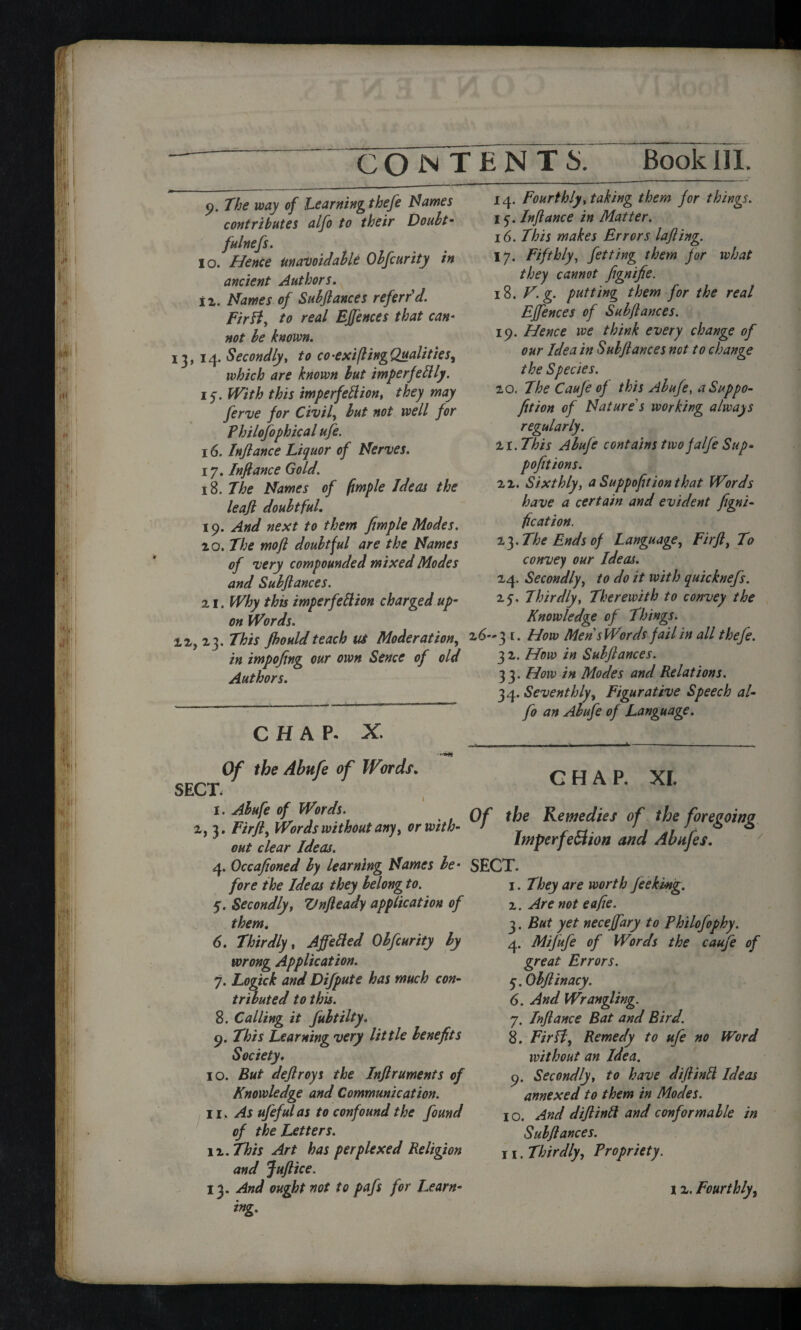 CONTENTS. Book III.
9. The way of Learning theſe Names
contributes alſo to their Doubt-
fulneſs.
10. Hence unavoidable Obſcurity in
ancient Authors.
12. Names of Subſtances referr'd.
Firſt, to real Eſſences that can-
not be known.
13, 14. Secondly, to co-exiſting Qualities,
which are known but imperfectly.
15. With this imperfection, they may
ſerve for Civil, but not well for
Philoſophical uſe.
16. Inſtance Liquor of Nerves.
17. Inſtance Gold.
18. The Names of ſimple Ideas the
leaſt doubtful.
19. And next to them ſimple Modes.
20. The moſt doubtful are the Names
of very compounded mixed Modes
and Subſtances.
21. Why this imperfection charged up-
on Words.
22, 23. This ſhould teach us Moderation,
in impoſing our own Sence of old
Authors.
CHAP. X.
Of the Abuſe of Words.
SECT.
1. Abuſe of Words.
2, 3. Firſt, Words without any, or with-
out clear Ideas.
4. Occaſioned by learning Names be-
fore the Ideas they belong to.
5. Secondly, Unſteady application of
them.
6. Thirdly, Affected Obſcurity by
wrong Application.
7. Logick and Diſpute has much con-
tributed to this.
8. Calling it ſubtilty.
9. This Learning very little benefits
Society.
10. But deſtroys the Inſtruments of
Knowledge and Communication.
11. As uſeful as to confound the ſound
of the Letters.
12. This Art has perplexed Religion
and Juſtice.
13. And ought not to paſs for Learn-
ing.
14. Fourthly, taking them for things.
15. Inſtance in Matter.
16. This makes Errors laſting.
17. Fifthly, ſetting them for what
they cannot ſignifie.
18. V. g. putting them for the real
Eſſences of Subſtances.
19. Hence we think every change of
our Idea in Subſtances not to change
the Species.
20. The Cauſe of this Abuſe, a Suppo-
ſition of Nature's working always
regularly.
21. This Abuſe contains two falſe Sup-
poſitions.
22. Sixthly, a Suppoſition that Words
have a certain and evident ſigni-
fication.
23. The Ends of Language, Firſt, To
convey our Ideas.
24. Secondly, to do it with quickneſs.
25. Thirdly, Therewith to convey the
Knowledge of Things.
26--31. How Men's Words fail in all theſe.
32. How in Subſtances.
33. How in Modes and Relations.
34. Seventhly, Figurative Speech al-
ſo an Abuſe of Language.
CHAP. XI.
Of the Remedies of the foregoing
Imperfection and Abuſes.
SECT.
1. They are worth ſeeking.
2. Are not eaſie.
3. But yet neceſſary to Philoſophy.
4. Miſuſe of Words the cauſe of
great Errors.
5. Obſtinacy.
6. And Wrangling.
7. Inſtance Bat and Bird.
8. Firſt, Remedy to uſe no Word
without an Idea.
9. Secondly, to have diſtinct Ideas
annexed to them in Modes.
10. And diſtinct and conformable in
Subſtances.
11. Thirdly, Propriety.
12. Fourthly,